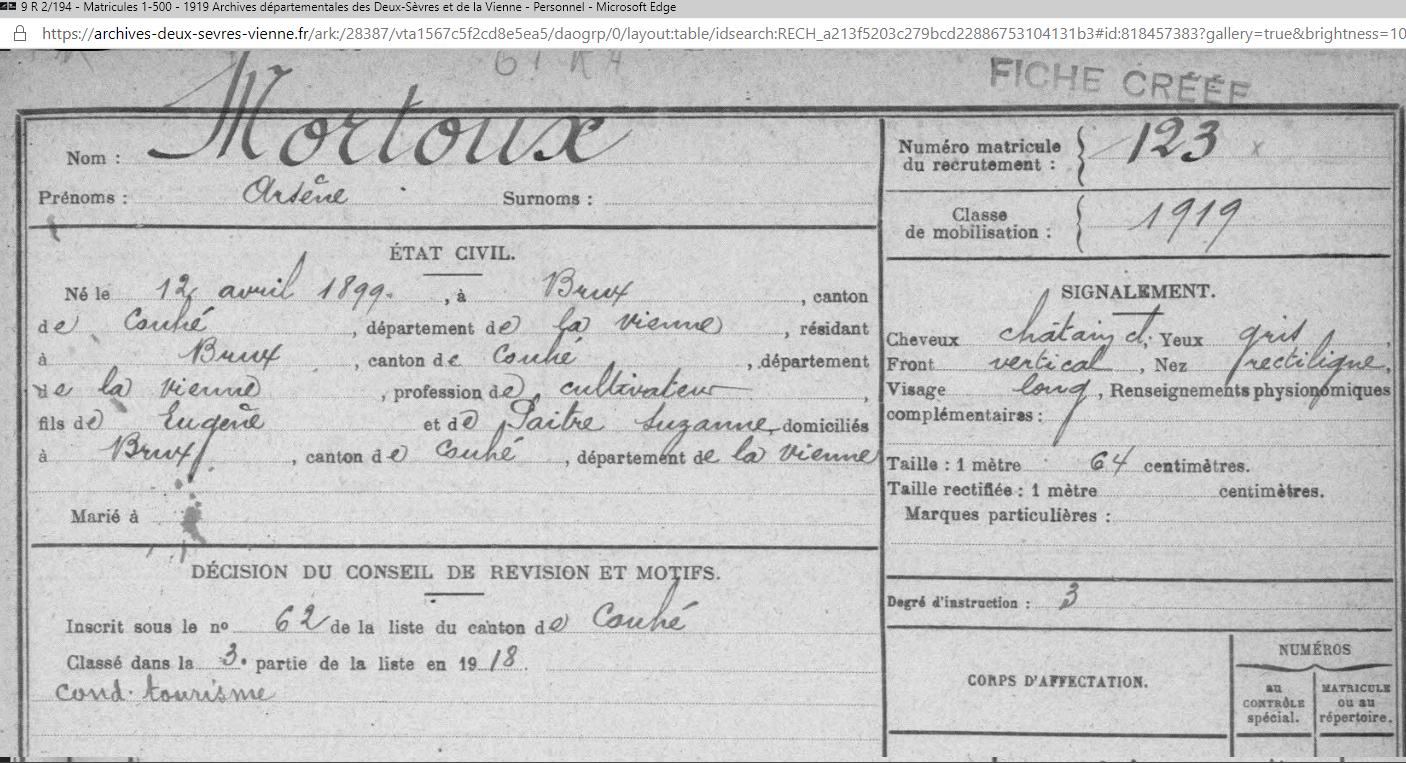 9 R 2/194 - Matricules 1-500 - 1919 Archives départementales des Deux-Sèvres et de la Vienne - Personnel - Microsoft Edge
https://archives-deux-sevres-vienne.fr/ark:/28387/vta1567c5f2cd8e5ea5/daogrp/0/layout:table/idsearch:RECH_a213f5203c279bcd22886753104131b3#id:818457383?gallery=true&brightness=10
FICHE CRÉÉE
Nom : Mortoux
Prénoms : Arsène Surnoms :
ÉTAT CIVIL.
Né le 12 avril 1899. , à Brux , canton
de Couhé , département de la Vienne , résidant
à Brux , canton de Couhé , département
de la Vienne , profession de cultivateur ,
fils de Eugène et de Paitre Suzanne, domiciliés
à Brux , canton de Couhé , département de la Vienne
Marié à
DÉCISION DU CONSEIL DE REVISION ET MOTIFS.
Inscrit sous le no 62 de la liste du canton de Couhé
Classé dans la 3e partie de la liste en 1918.
cond. tourisme
Numéro matricule
du recrutement : 123 x
Classe
de mobilisation : 1919
SIGNALEMENT.
Cheveux châtain d, Yeux gris ,
Front vertical , Nez rectiligne,
Visage long , Renseignements physionomiques
complémentaires :
Taille : 1 mètre 64 centimètres.
Taille rectifiée : 1 mètre centimètres.
Marques particulières :
Degré d'instruction : 3
CORPS D'AFFECTATION.
NUMÉROS
au
CONTRÔLE
spécial.
MATRICULE
ou au
répertoire.